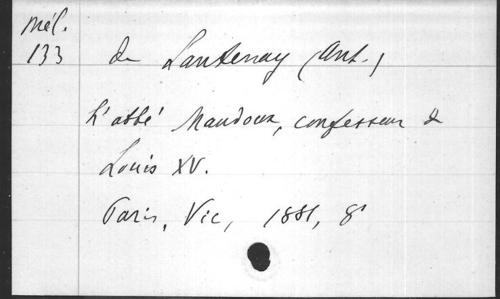 Mél.
133
de Lantenay (Ant.)
L'abbé Maudoux, confesseur de
Louis XV.
Paris, Vic, 1881, 8°